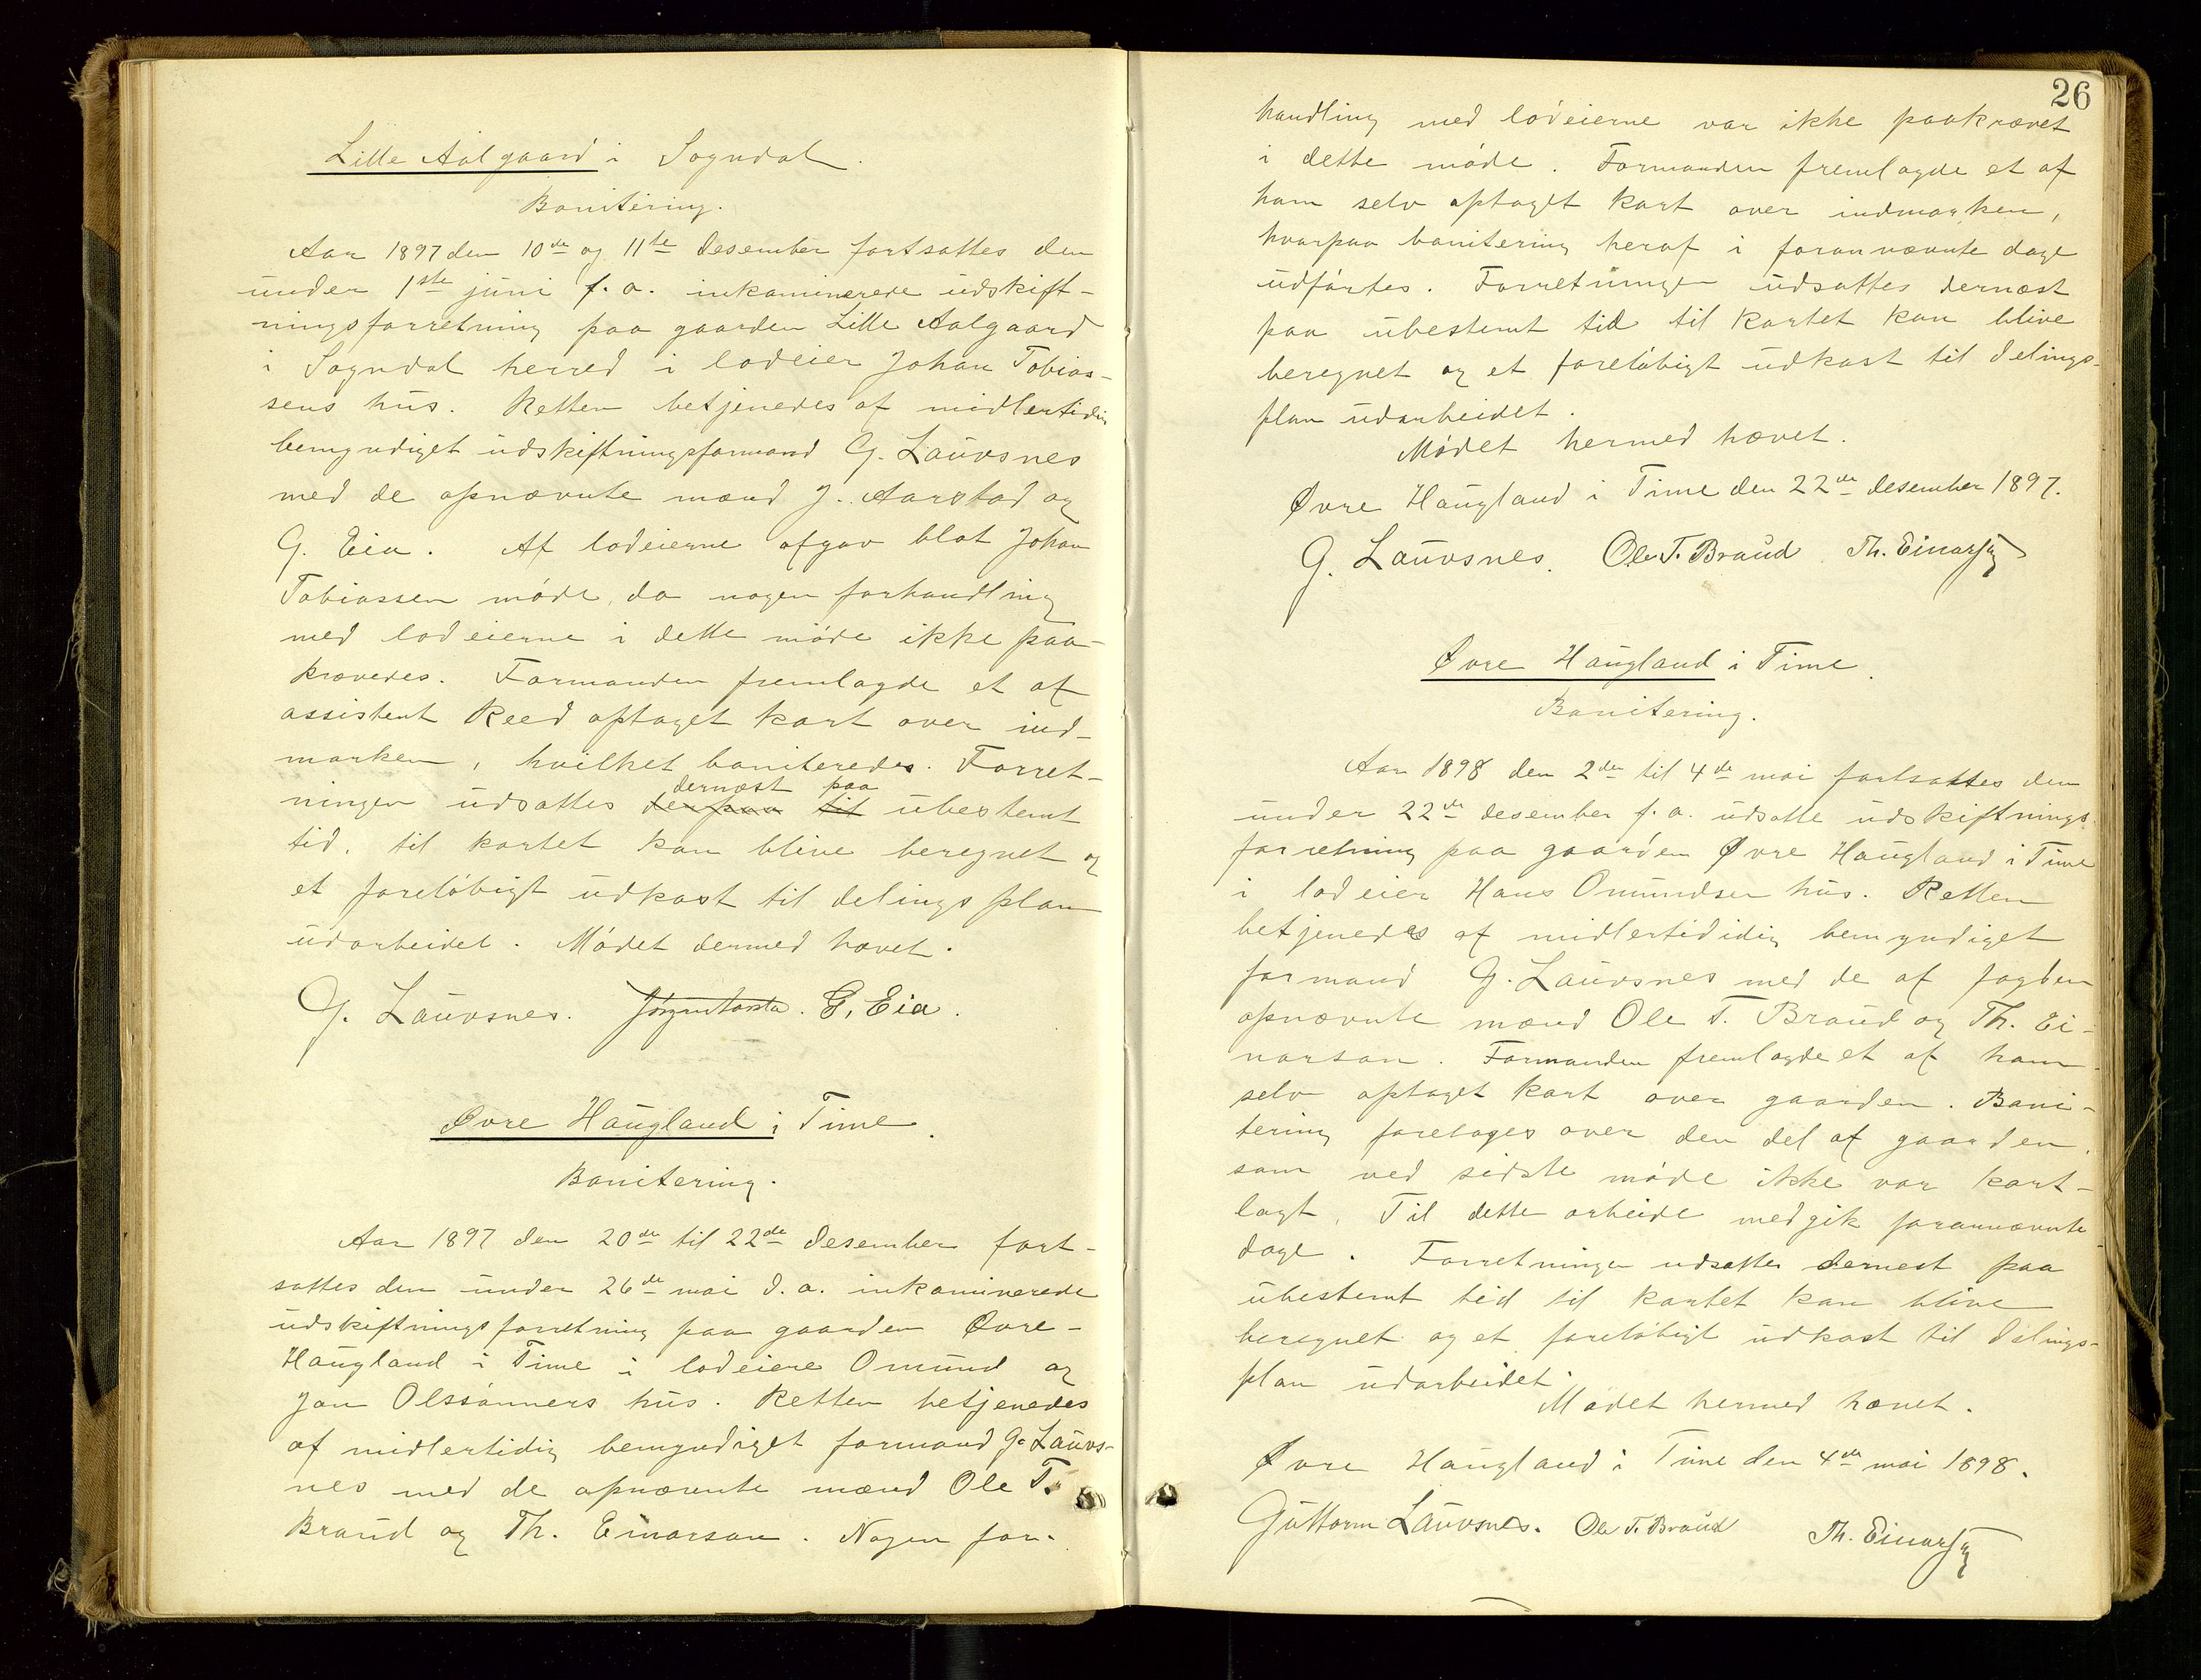 Lille Aalgaard i Sogndal.
Bonitering.
Aar 1897 den 10de og 11te desember fortsattes den
under 1ste juni f. a. inkaminerede udskift-
ningsforretning paa gaarden Lille Aalgaard
i Sogndal herred i lodeier Johan Tobias-
sens hus. Retten betjenedes af midlertidig
bemyndiget udskiftningsformand G. Lauvsnes
med de opnævnte mænd J. Aarstad og
G. Eia. Af lodeierne afgav blot Johan
Tobiassen møde, da nogen forhandling
med lodeierne i dette møde ikke paa-
krævedes. Formanden fremlagde et af
assistent Reed optaget kart over ind-
marken, hvilket boniteredes. Forret-
dernæst paa
ningen udsattes derpaa til ubestemt
tid, til kartet kan blive beregnet og
et foreløbigt udkast til delingsplan
udarbeidet. Mødet dermed hævet.
G. Lauvsnes. G. Eia.
Øvre Haugland i Time.
Bonitering.
Aar 1897 den 20de til 22de desember fort-
sattes den under 26de mai d. a. inkaminerede
udskiftningsforretning paa gaarden Øvre-
Haugland i Time i lodeiere Omund og
Jan Olssønners hus. Retten betjenedes
af midlertidig bemyndiget formand G. Lauvs-
nes med de opnævnte mænd Ole T.
Braud og Th. Einarson. Nogen for-
26
handling med lodeierne var ikke paakrævet
i dette møde. Formanden fremlagde et af
ham selv optaget kart over indmarken,
hvorpaa bonitering heraf i forannævnte dage
udførtes. Forretningen udsattes dernæst
paa ubestemt tid til kartet kan blive
beregnet og et foreløbigt udkast til delings-
plan udarbeidet.
Mødet hermed hævet.
Øvre Haugland i Time den 22de desember 1897.
G. Lauvsnes. Ole T. Braud Th. Einarson
Øvre Haugland i Time.
Bonitering.
Aar 1898 den 2den til 4de mai fortsattes den
under 22de desember f. a. udsatte udskiftnings-
forretning paa gaarden Øvre Haugland i Time
i lodeier Hans Omundsen hus. Retten
betjenedes af midlertididig bemyndiget
formand G. Lauvsnes med de af fogden
opnævnte mænd Ole T. Braud og Th. Ei-
narson. Formanden fremlagde et af ham
selv optaget kart over gaarden. Boni-
tering foretoges over den del af gaarden,
som ved sidste møde ikke var kart-
lagt. Til dette arbeide medgik forannævnte
dage. Forretningen udsattes dernest paa
ubestemt tid til kartet kan blive
beregnet og et foreløbigt udkast til delings-
plan udarbeidet.
Mødet hermed hævet.
Øvre Haugland i Time den 4de mai 1898.
Guttorm Lauvsnes. Ole T. Braud Th. Einarson